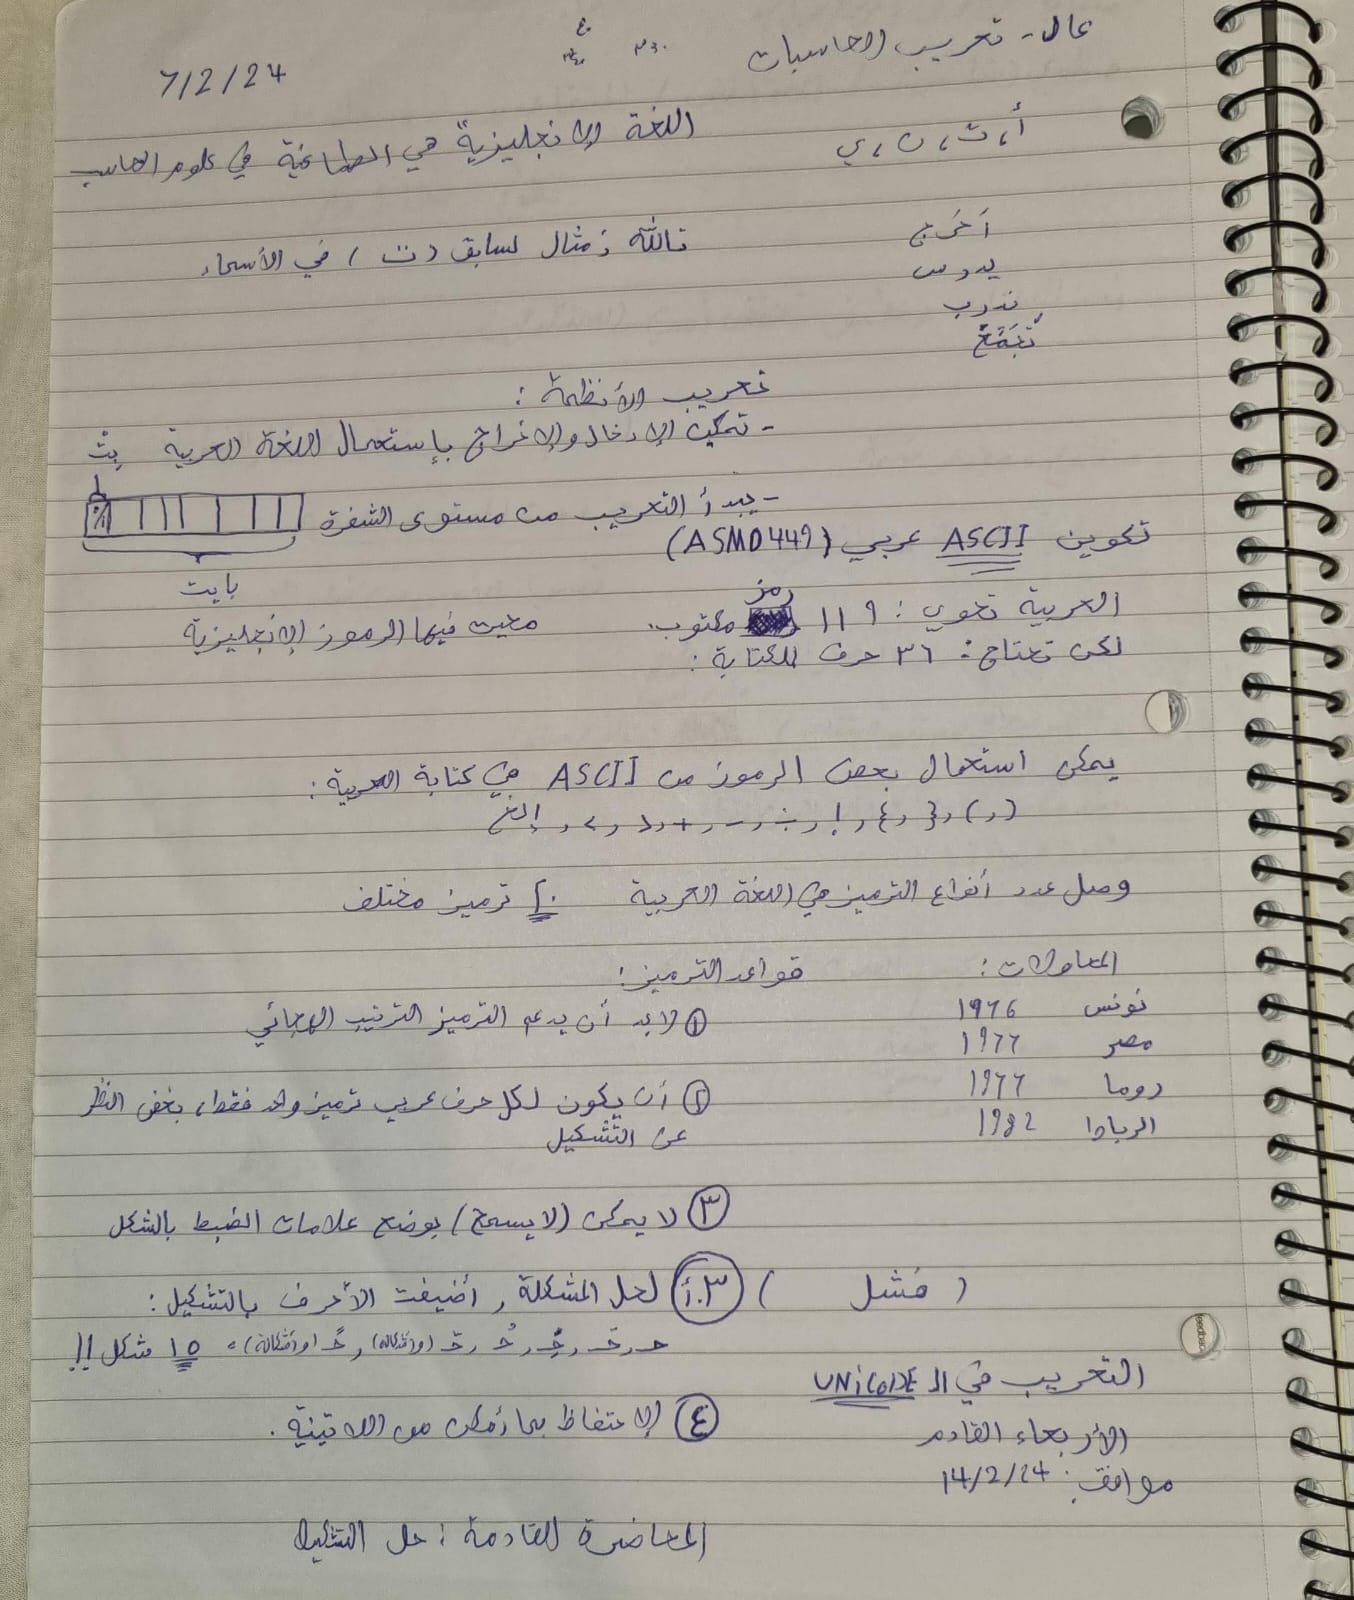 عال - تعريب الحاسبات
7/2/24
أ، ت، ن، ي
اللغة الإنجليزية هي الطاغية في علوم الحاسب
أخرج
يدرس
ندرب
تالله: مثال لسابق (ت) في الأسماء
تعريب الأنظمة:
- تمكين الإدخال والإخراج بإستعمال اللغة العربية
بِتْ
- يبدأ التعريب من مستوى الشفرة
تكوين ASCII عربي (ASMO449)
بايت
العربية تحوي: ١١٩ رمز مكتوب.
معين فيها الرموز الإنجليزية
لكن تحتاج: ٣٦ حرف للكتابة:
يمكن استعمال بعض الرموز من ASCII في كتابة العربية:
( , ) , { , } , ! , ÷ , - , + , < , > , إلخ
وصل عدد أنواع الترميز في اللغة العربية ٢٠ ترميز مختلف
المحاولات:
تونس 1976
مصر 1977
روما 1977
الرباط 1982
قواعد الترميز:
١ لابد أن يدعم الترميز الترتيب الهجائي
٢ أن يكون لكل حرف عربي ترميز واحد فقط، بغض النظر
عن التشكيل
٣ لا يمكن (لا يسمح) بوضع علامات الضبط بالشكل
( فشل )
٣.أ لحل المشكلة, أضيفت الأحرف بالتشكيل:
= ١٥ شكل!!
٤ الإحتفاظ بما أمكن من اللاتينية.
التعريب في الـ UNiCODE
الأربعاء القادم
موافق: 14/2/24
المحاضرة القادمة: حل التشكيل